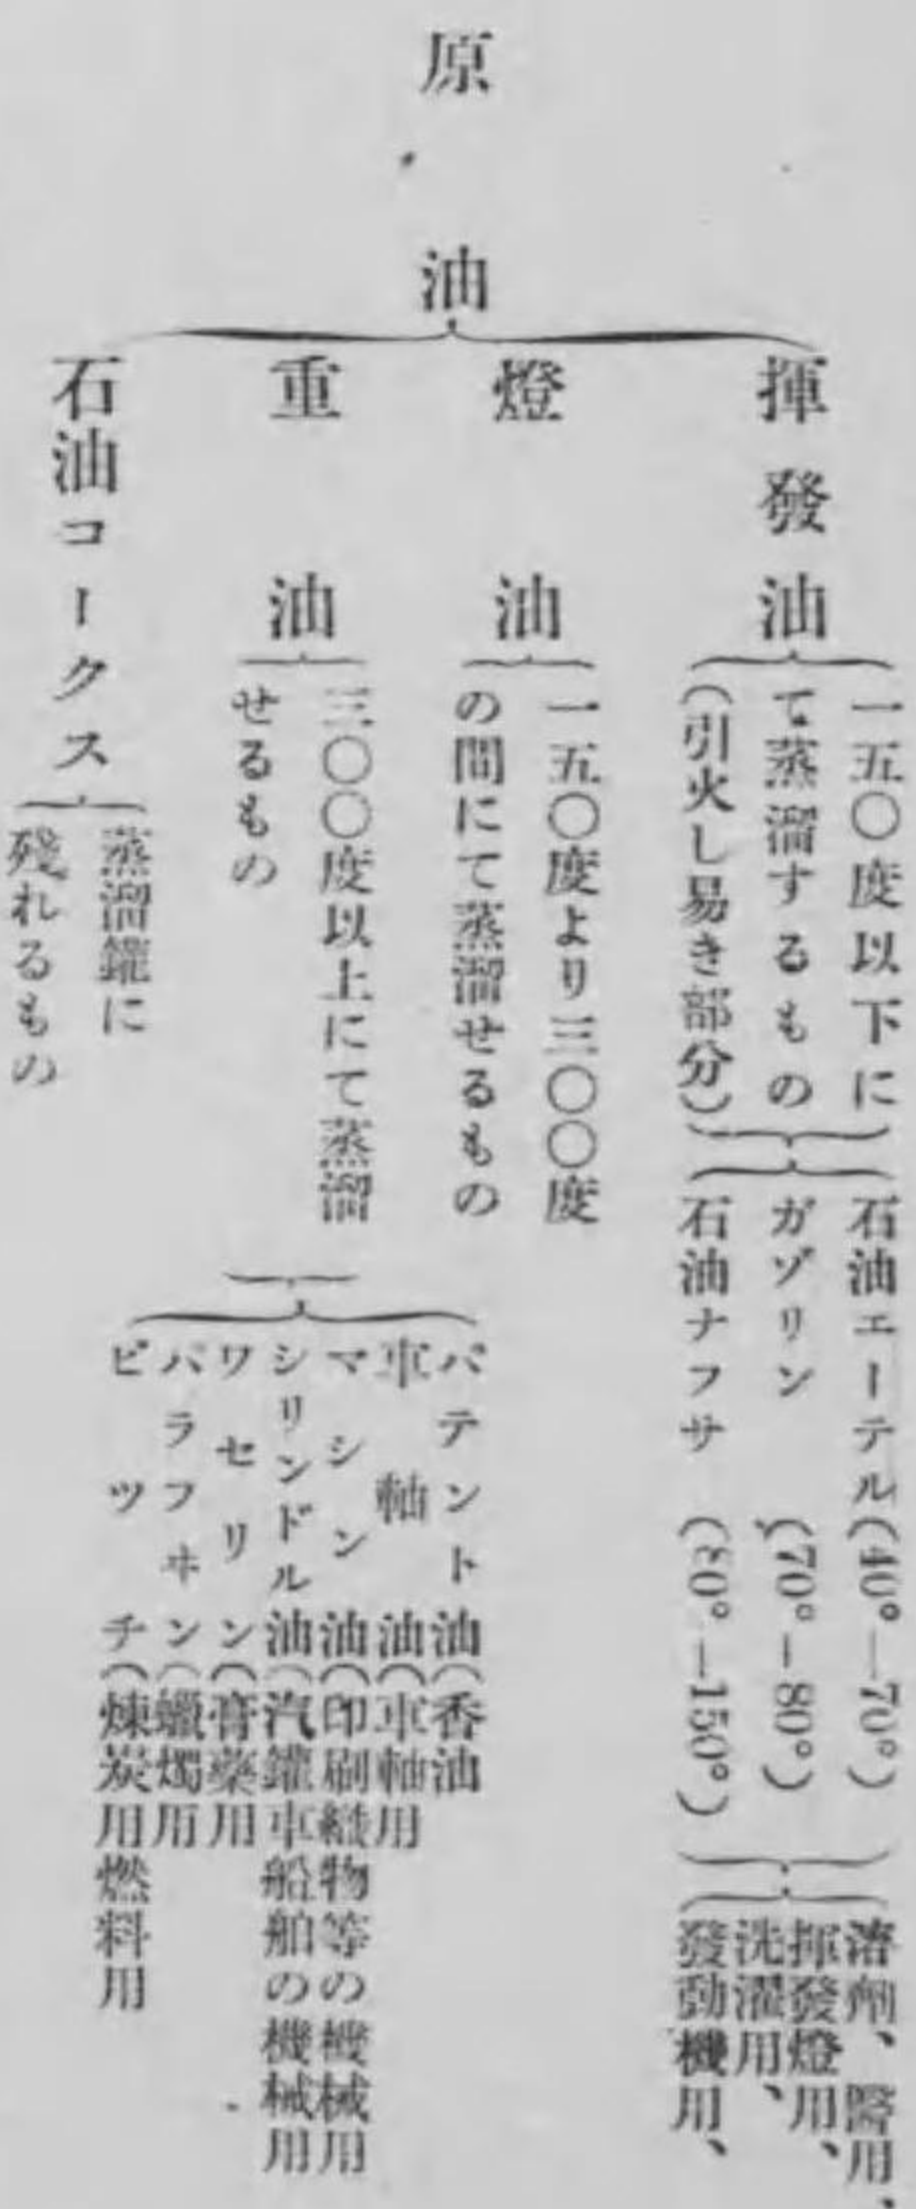 原油
揮發油
一五〇度以下に
て蒸溜するもの
(引火し易き部分)
石油エーテル(40°—70°)
ガゾリン(70°—80°)
石油ナフサ(80°—150°)
溶劑、醫用、
揮發燈用、
洗濯用、
發動機用、
燈油
一五〇度より三〇〇度
の間にて蒸溜せるもの
重油
三〇〇度以上にて蒸溜
せるもの
パテント油(香油
車軸油(車軸用
マシン油(印刷織物等の機械用
シリンドル油(汽鑵車船舶の機械用
ワセリン(膏藥用
パラフヰン(蠟燭用
ピツチ(煉炭用燃料用
石油コークス
蒸溜鑵に
殘れるもの